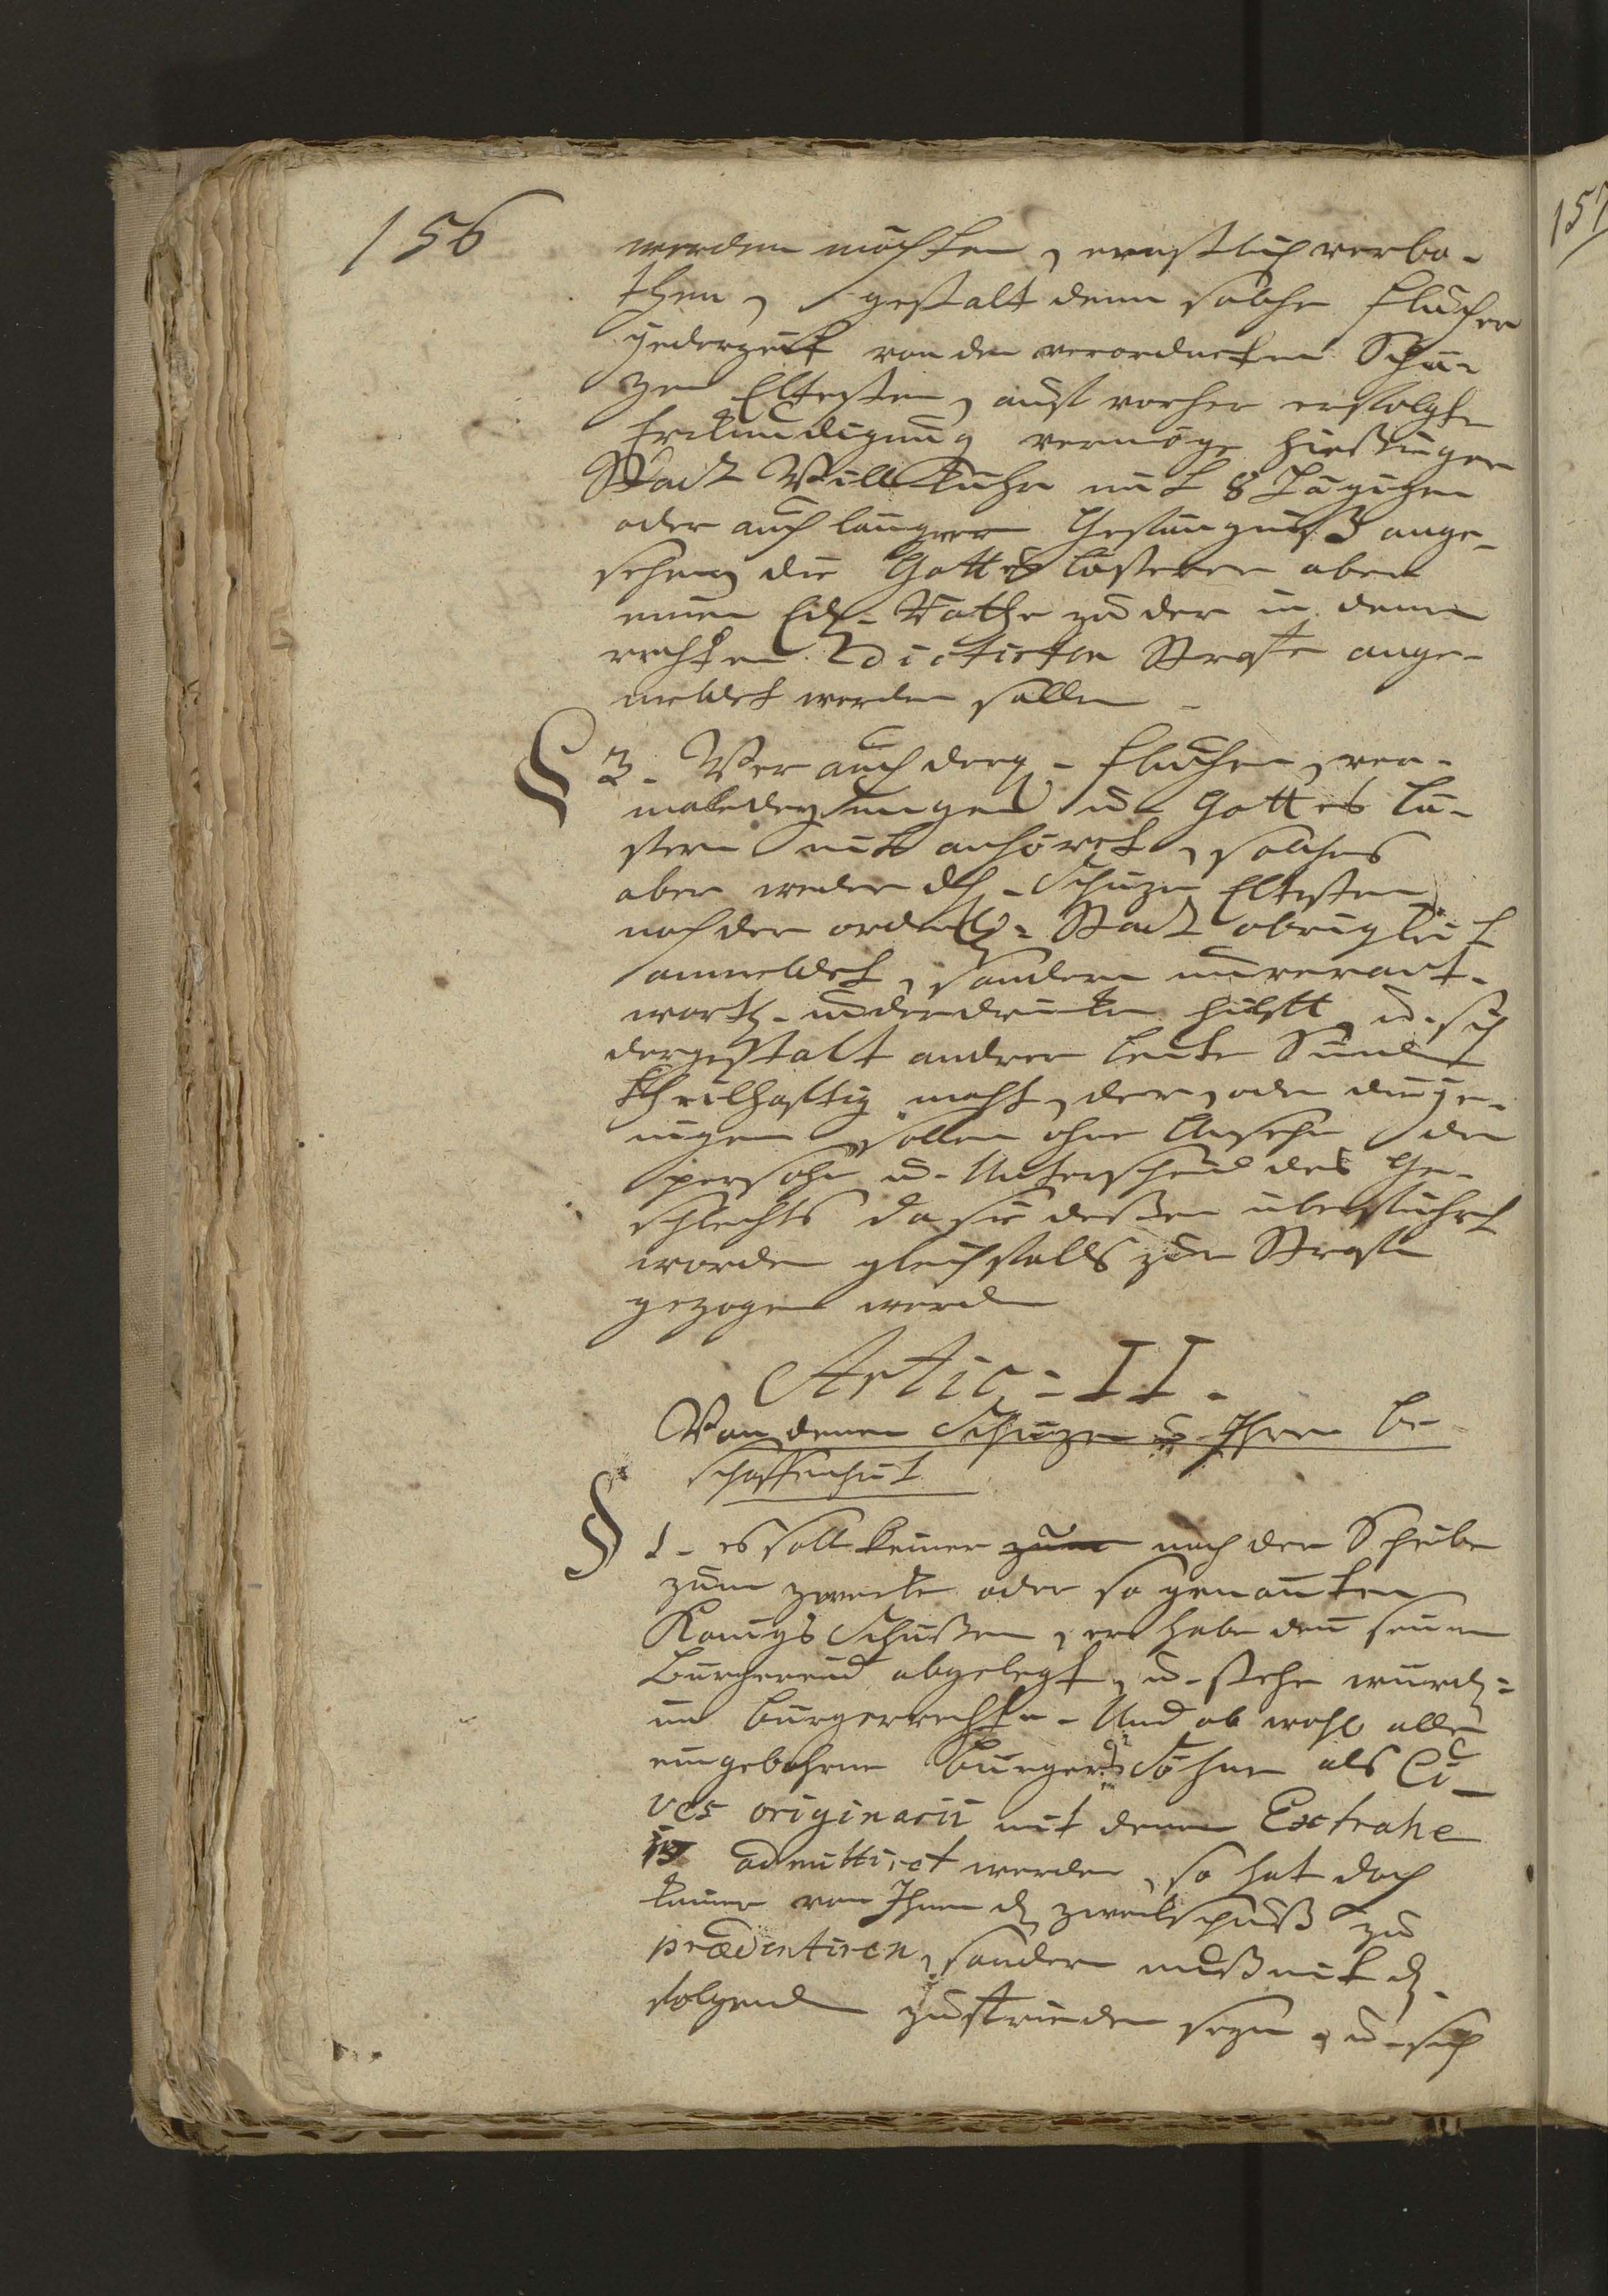 156
157
werden möchten, ernstlich verbo-
then, gestalt denn solche flücher
jederzeit von den verordneten Schü-
zen Eltesten, auf vorher erfolgte
Erkundigung vermöge hiesiger
Stadt Willkuhr mit 8 Tägigen
oder auch länger Gefängniß ange-
sehen, die Gottes lästerer aber
einen Edl- Rathe zu der in denen
rechten dictirten Straffe ange-
meldet werden sollen
§ 3. Wer auch derg- fluchen, ver-
maledeyungen u- Gottes Lä-
stern mit anhöret, solches
aber weder dh- Schüzen Eltesten
noch der ordentl- Stadt obrigkeit
anmeldet, sondern unverant-
wortl- unterdrücken hilfft u- sich
dergestalt andrer leute Sünde
theilhafftig macht, der, oder dieje-
nigen sollen ohne Ansehn der
persohn u- Unterscheid des Ge-
schlechts da sie deßen überführt
worden gleichfalls zur Straffe
gezogen werden
Artic: II.
Von denen Schüzen u- Ihrer be-
schaffenheit
§ 1- es soll keiner zum nach der Scheibe
zum zwecke oder so genanten
Königs Schüßen, er habe den seinen
Bürgereid abgelegt, u- stehe würckl:
im bürgerrechte- Und ob wohl alle
eingebohrne Bürgers Söhne als Ci-
ves originarii mit denen Extrahe
is admittiret werden, so hat doch
keiner von Ihnen d- zweckschuß zu
prædentiren, sondern muß mit d-
folgenden zufrieden seyn, u- sich